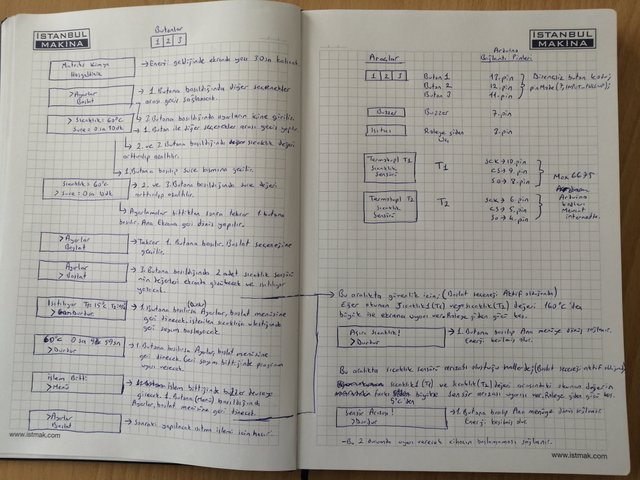 İSTANBUL
MAKİNA
Butonlar
1 2 3
Hoşgeldiniz
Enerji geldiğinde ekranda yazı 30sn kalacak
>Ayarlar
Başlat
1. Butona basıldığında diğer seçenekler
arası geçiş sağlayacak.
>Sıcaklık: 60°C
Sure = 0 sa 10 dk
3. Butona basıldığında ayarların içine girilir.
1. Buton ile diğer seçenekler arası geçiş yapılır.
2. ve 3. Butona basıldığında sıcaklık değeri
arttırılıp azaltılır.
1. Butona basılıp sure kısmına geçilir.
Sıcaklık = 60°C
>Sure = 0 sa 10 dk
2. ve 3. Butona basıldığında sure değeri
arttırılıp azaltılır.
Ayarlamalar bittikten sonra tekrar 1. butona
basılır. Ana Ekrana geri dönüş yapılır.
>Ayarlar
Başlat
Tekrar 1. Butona basılır. Başlat seçeneğine
gelinir.
Ayarlar
>Başlat
3. Butona basıldığında 2 adet sıcaklık sensörü
nün değerleri ekranda gözükecek ve ısıtılıyor
yazacak.
Isıtılıyor
>Durdur
1. Butona basılırsa Ayarlar, başlat menüsüne
geri dönecek. istenilen sıcaklığa ulaştığında
geri sayım başlayacak.
60°C 0 sa 59 sn
>Durdur
1. Butona basılırsa Ayarlar, başlat menüsüne
geri dönecek. Geri sayım bittiğinde
uyarı verecek.
İşlem Bitti
>Menü
işlem bittiğinde
girecek. 1. Butona (Menü) basıldığında
Ayarlar, başlat menüsüne geri dönecek.
>Ayarlar
Başlat
Sonraki yapılacak işlemi için hazır.
www.istmak.com
İSTANBUL
MAKİNA
Araçlar
Arduino
Bağlantı Pinleri
1 2 3
Buton 1 13. pin
Buton 2 12. pin
Buton 3 11. pin
Dirençsiz buton kodu
pinMode(7, INPUT_PULLUP);
Buzzer Buzzer 7. pin
Isıtıcı Röleye giden 2. pin
Termokupl T1
Sıcaklık
Sensörü
T1
SCK → 10. pin
CS → 9. pin
SO → 8. pin
Max 6675
Arduino
kodları
Mevcut
internette.
Termokupl T2
Sıcaklık
Sensörü
T2
SCK → 6. pin
CS → 5. pin
SO → 4. pin
Bu aralıkta güvenlik için; (Başlat seçeneği Aktif olduğunda)
Eğer okunan Sıcaklık1 (T1) veya Sıcaklık2 (T2) değeri 160°C'den
büyük ise ekrana uyarı ver. Röleye giden gücü kes.
Aşırı Sıcaklık!
>Durdur
1. Butona basılıp Ana menüye dönüş sağlanır.
Enerji kesilmiş olur.
Bu aralıkta sıcaklık sensörü arızası oluştuğu hallerde; (Başlat seçeneği aktif olduğunda)
Sıcaklık1 (T1) ve Sıcaklık2 (T2) değeri arasındaki okunan değerin
farkı büyükse Sensör arızası uyarısı ver. Röleye giden gücü kes.
5°C'den
Sensör Arızası!
>Durdur
1. Butona basılıp Ana menüye dönüş sağlanır.
Enerji kesilmiş olur.
- Bu 2 durumda uyarı verecek cihazın
www.istmak.com